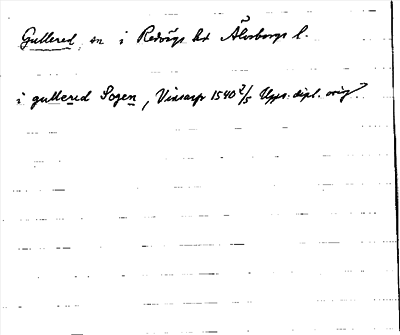 Gullered, sn i Redvägs hd Älvsborgs l.
i gullered Sogen, Vinsarp 1540 2/5 Upps. dipl. orig.